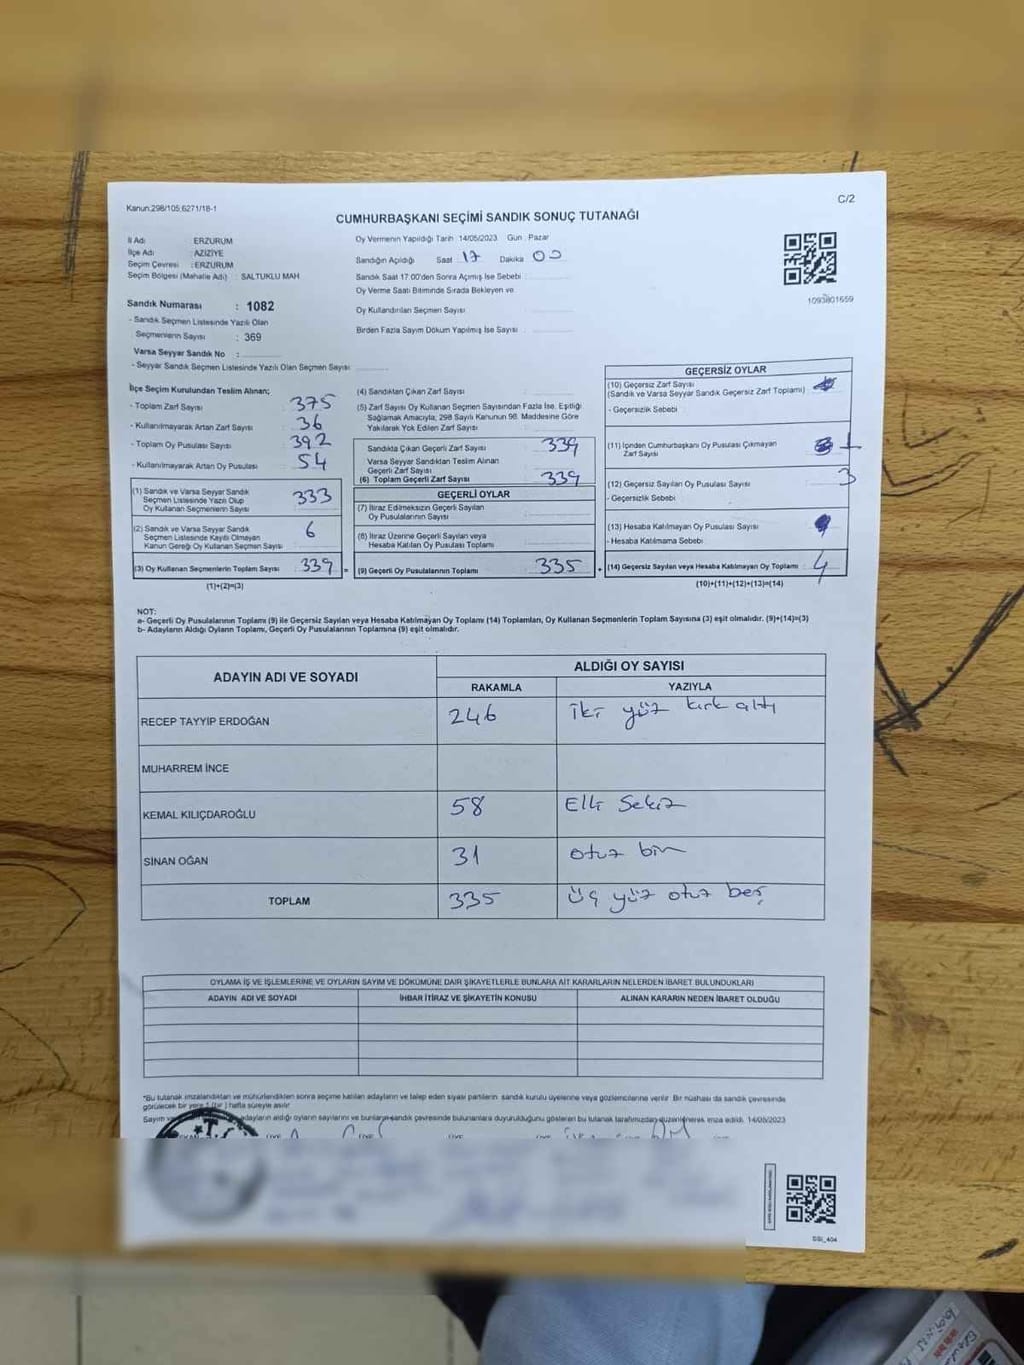 Kanun:298/105;6271/18-1
C/2
CUMHURBAŞKANI SEÇİMİ SANDIK SONUÇ TUTANAĞI
İl Adı : ERZURUM
İlçe Adı : AZİZİYE
Seçim Çevresi : ERZURUM
Seçim Bölgesi (Mahalle Adı) : SALTUKLU MAH
Sandık Numarası : 1082
- Sandık Seçmen Listesinde Yazılı Olan
Seçmenlerin Sayısı : 369
Varsa Seyyar Sandık No :
- Seyyar Sandık Seçmen Listesinde Yazılı Olan Seçmen Sayısı
Oy Vermenin Yapıldığı Tarih 14/05/2023 Gün Pazar
Sandığın Açıldığı Saat 17 Dakika 00
Sandık Saat 17:00'den Sonra Açılmış İse Sebebi
Oy Verme Saati Bitiminde Sırada Bekleyen ve
Oy Kullandırılan Seçmen Sayısı
Birden Fazla Sayım Döküm Yapılmış İse Sayısı
1093801659
İlçe Seçim Kurulundan Teslim Alınan;
- Toplam Zarf Sayısı 375
- Kullanılmayarak Artan Zarf Sayısı 36
- Toplam Oy Pusulası Sayısı 392
- Kullanılmayarak Artan Oy Pusulası 54
(1) Sandık ve Varsa Seyyar Sandık
Seçmen Listesinde Yazılı Olup
Oy Kullanan Seçmenlerin Sayısı 333
(2) Sandık ve Varsa Seyyar Sandık
Seçmen Listesinde Kayıtlı Olmayan
Kanun Gereği Oy Kullanan Seçmen Sayısı 6
(3) Oy Kullanan Seçmenlerin Toplam Sayısı 339 =
(1)+(2)=(3)
(4) Sandıktan Çıkan Zarf Sayısı
(5) Zarf Sayısı Oy Kullanan Seçmen Sayısından Fazla İse, Eşitliği
Sağlamak Amacıyla, 298 Sayılı Kanunun 98. Maddesine Göre
Yakılarak Yok Edilen Zarf Sayısı
Sandıkta Çıkan Geçerli Zarf Sayısı 339
Varsa Seyyar Sandıktan Teslim Alınan
Geçerli Zarf Sayısı
(6) Toplam Geçerli Zarf Sayısı 339
GEÇERLİ OYLAR
(7) İtiraz Edilmeksizin Geçerli Sayılan
Oy Pusulalarının Sayısı
(8) İtiraz Üzerine Geçerli Sayılan veya
Hesaba Katılan Oy Pusulası Toplamı
(9) Geçerli Oy Pusulalarının Toplamı 335 +
GEÇERSİZ OYLAR
(10) Geçersiz Zarf Sayısı
(Sandık ve Varsa Seyyar Sandık Geçersiz Zarf Toplamı)
- Geçersizlik Sebebi
(11) İçinden Cumhurbaşkanı Oy Pusulası Çıkmayan
Zarf Sayısı 1
(12) Geçersiz Sayılan Oy Pusulası Sayısı 3
- Geçersizlik Sebebi
(13) Hesaba Katılmayan Oy Pusulası Sayısı
- Hesaba Katılmama Sebebi
(14) Geçersiz Sayılan veya Hesaba Katılmayan Oy Toplamı 4
(10)+(11)+(12)+(13)=(14)
NOT:
a- Geçerli Oy Pusulalarının Toplamı (9) ile Geçersiz Sayılan veya Hesaba Katılmayan Oy Toplamı (14) Toplamları, Oy Kullanan Seçmenlerin Toplam Sayısına (3) eşit olmalıdır. (9)+(14)=(3)
b- Adayların Aldığı Oyların Toplamı, Geçerli Oy Pusulalarının Toplamına (9) eşit olmalıdır.
ADAYIN ADI VE SOYADI ALDIĞI OY SAYISI
RAKAMLA YAZIYLA
RECEP TAYYİP ERDOĞAN 246 iki yüz kırk altı
MUHARREM İNCE
KEMAL KILIÇDAROĞLU 58 Elli Sekiz
SİNAN OĞAN 31 otuz bir
TOPLAM 335 üç yüz otuz beş
OYLAMA İŞ VE İŞLEMLERİNE VE OYLARIN SAYIM VE DÖKÜMÜNE DAİR ŞİKAYETLERLE BUNLARA AİT KARARLARIN NELERDEN İBARET BULUNDUKLARI
ADAYIN ADI VE SOYADI İHBAR İTİRAZ VE ŞİKAYETİN KONUSU ALINAN KARARIN NEDEN İBARET OLDUĞU
"Bu tutanak imzalandıktan ve mühürlendikten sonra seçime katılan adayların ve talep eden siyasi partilerin sandık kurulu üyelerine veya gözlemcilerine verilir. Bir nüshası da sandık çevresinde
görülecek bir yere 1 (bir) hafta süreyle asılır
Sayım adayların aldığı oyların sayılarını ve bunların sandık çevresinde bulunanlara duyurulduğunu gösteren bu tutanak tarafımızdan düzenlenerek imza edildi. 14/05/2023